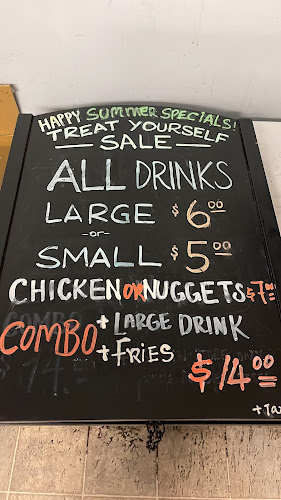 HAPPY SUMMER SPECIALS!
TREAT YOURSELF
— SALE —
ALL DRINKS
LARGE $6.00
-or-
SMALL $5.00
CHICKEN OR NUGGETS $7.00
COMBO + LARGE DRINK
+ FRIES
$14.00